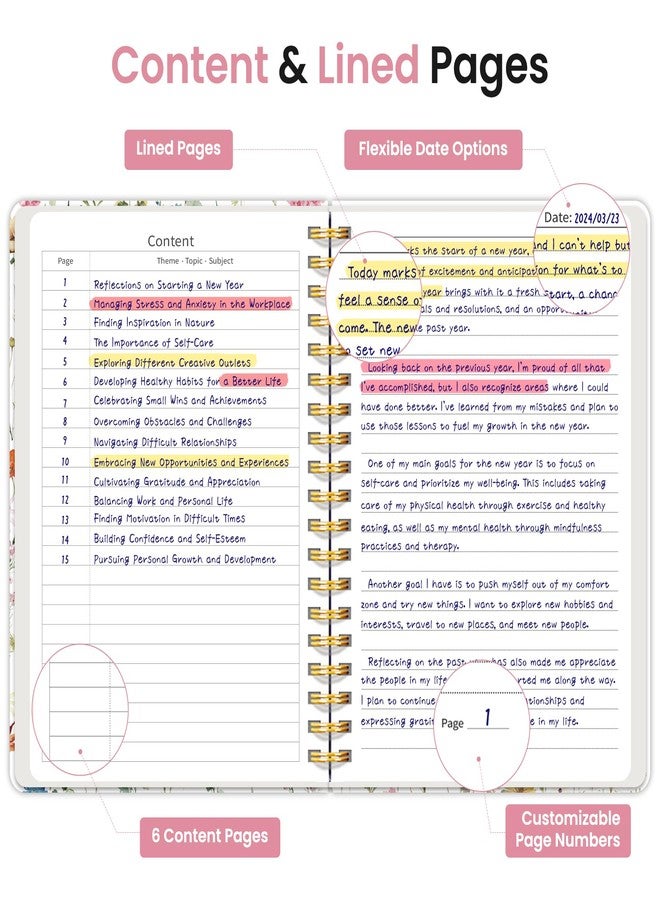 Content & Lined Pages
Lined Pages
Flexible Date Options
Content
Page Theme · Topic · Subject
1 Reflections on Starting a New Year
2 Managing Stress and Anxiety in the Workplace
3 Finding Inspiration in Nature
4 The Importance of Self-Care
5 Exploring Different Creative Outlets
6 Developing Healthy Habits for a Better Life
7 Celebrating Small Wins and Achievements
8 Overcoming Obstacles and Challenges
9 Navigating Difficult Relationships
10 Embracing New Opportunities and Experiences
11 Cultivating Gratitude and Appreciation
12 Balancing Work and Personal Life
13 Finding Motivation in Difficult Times
14 Building Confidence and Self-Esteem
15 Pursuing Personal Growth and Development
Date: 2024/03/23
the start of a new year, and I can't help but
Today marks of excitement and anticipation for what's to
feel a sense o year brings with it a fresh start, a chanc
come. The new and resolutions, and an
past year.
o set new
Looking back on the previous year, I'm proud of all that
I've accomplished, but I also recognize areas where I could
have done better. I've learned from my mistakes and plan to
use those lessons to fuel my growth in the new year.
One of my main goals for the new year is to focus on
self-care and prioritize my well-being. This includes taking
care of my physical health through exercise and healthy
eating, as well as my mental health through mindfulness
practices and therapy.
Another goal I have is to push myself out of my comfort
zone and try new things. I want to explore new hobbies and
interests, travel to new places, and meet new people.
Reflecting on the past has also made me appreciate
the people in my life me along the way.
I plan to continue and
expressing in my life.
Page 1
6 Content Pages
Customizable
Page Numbers